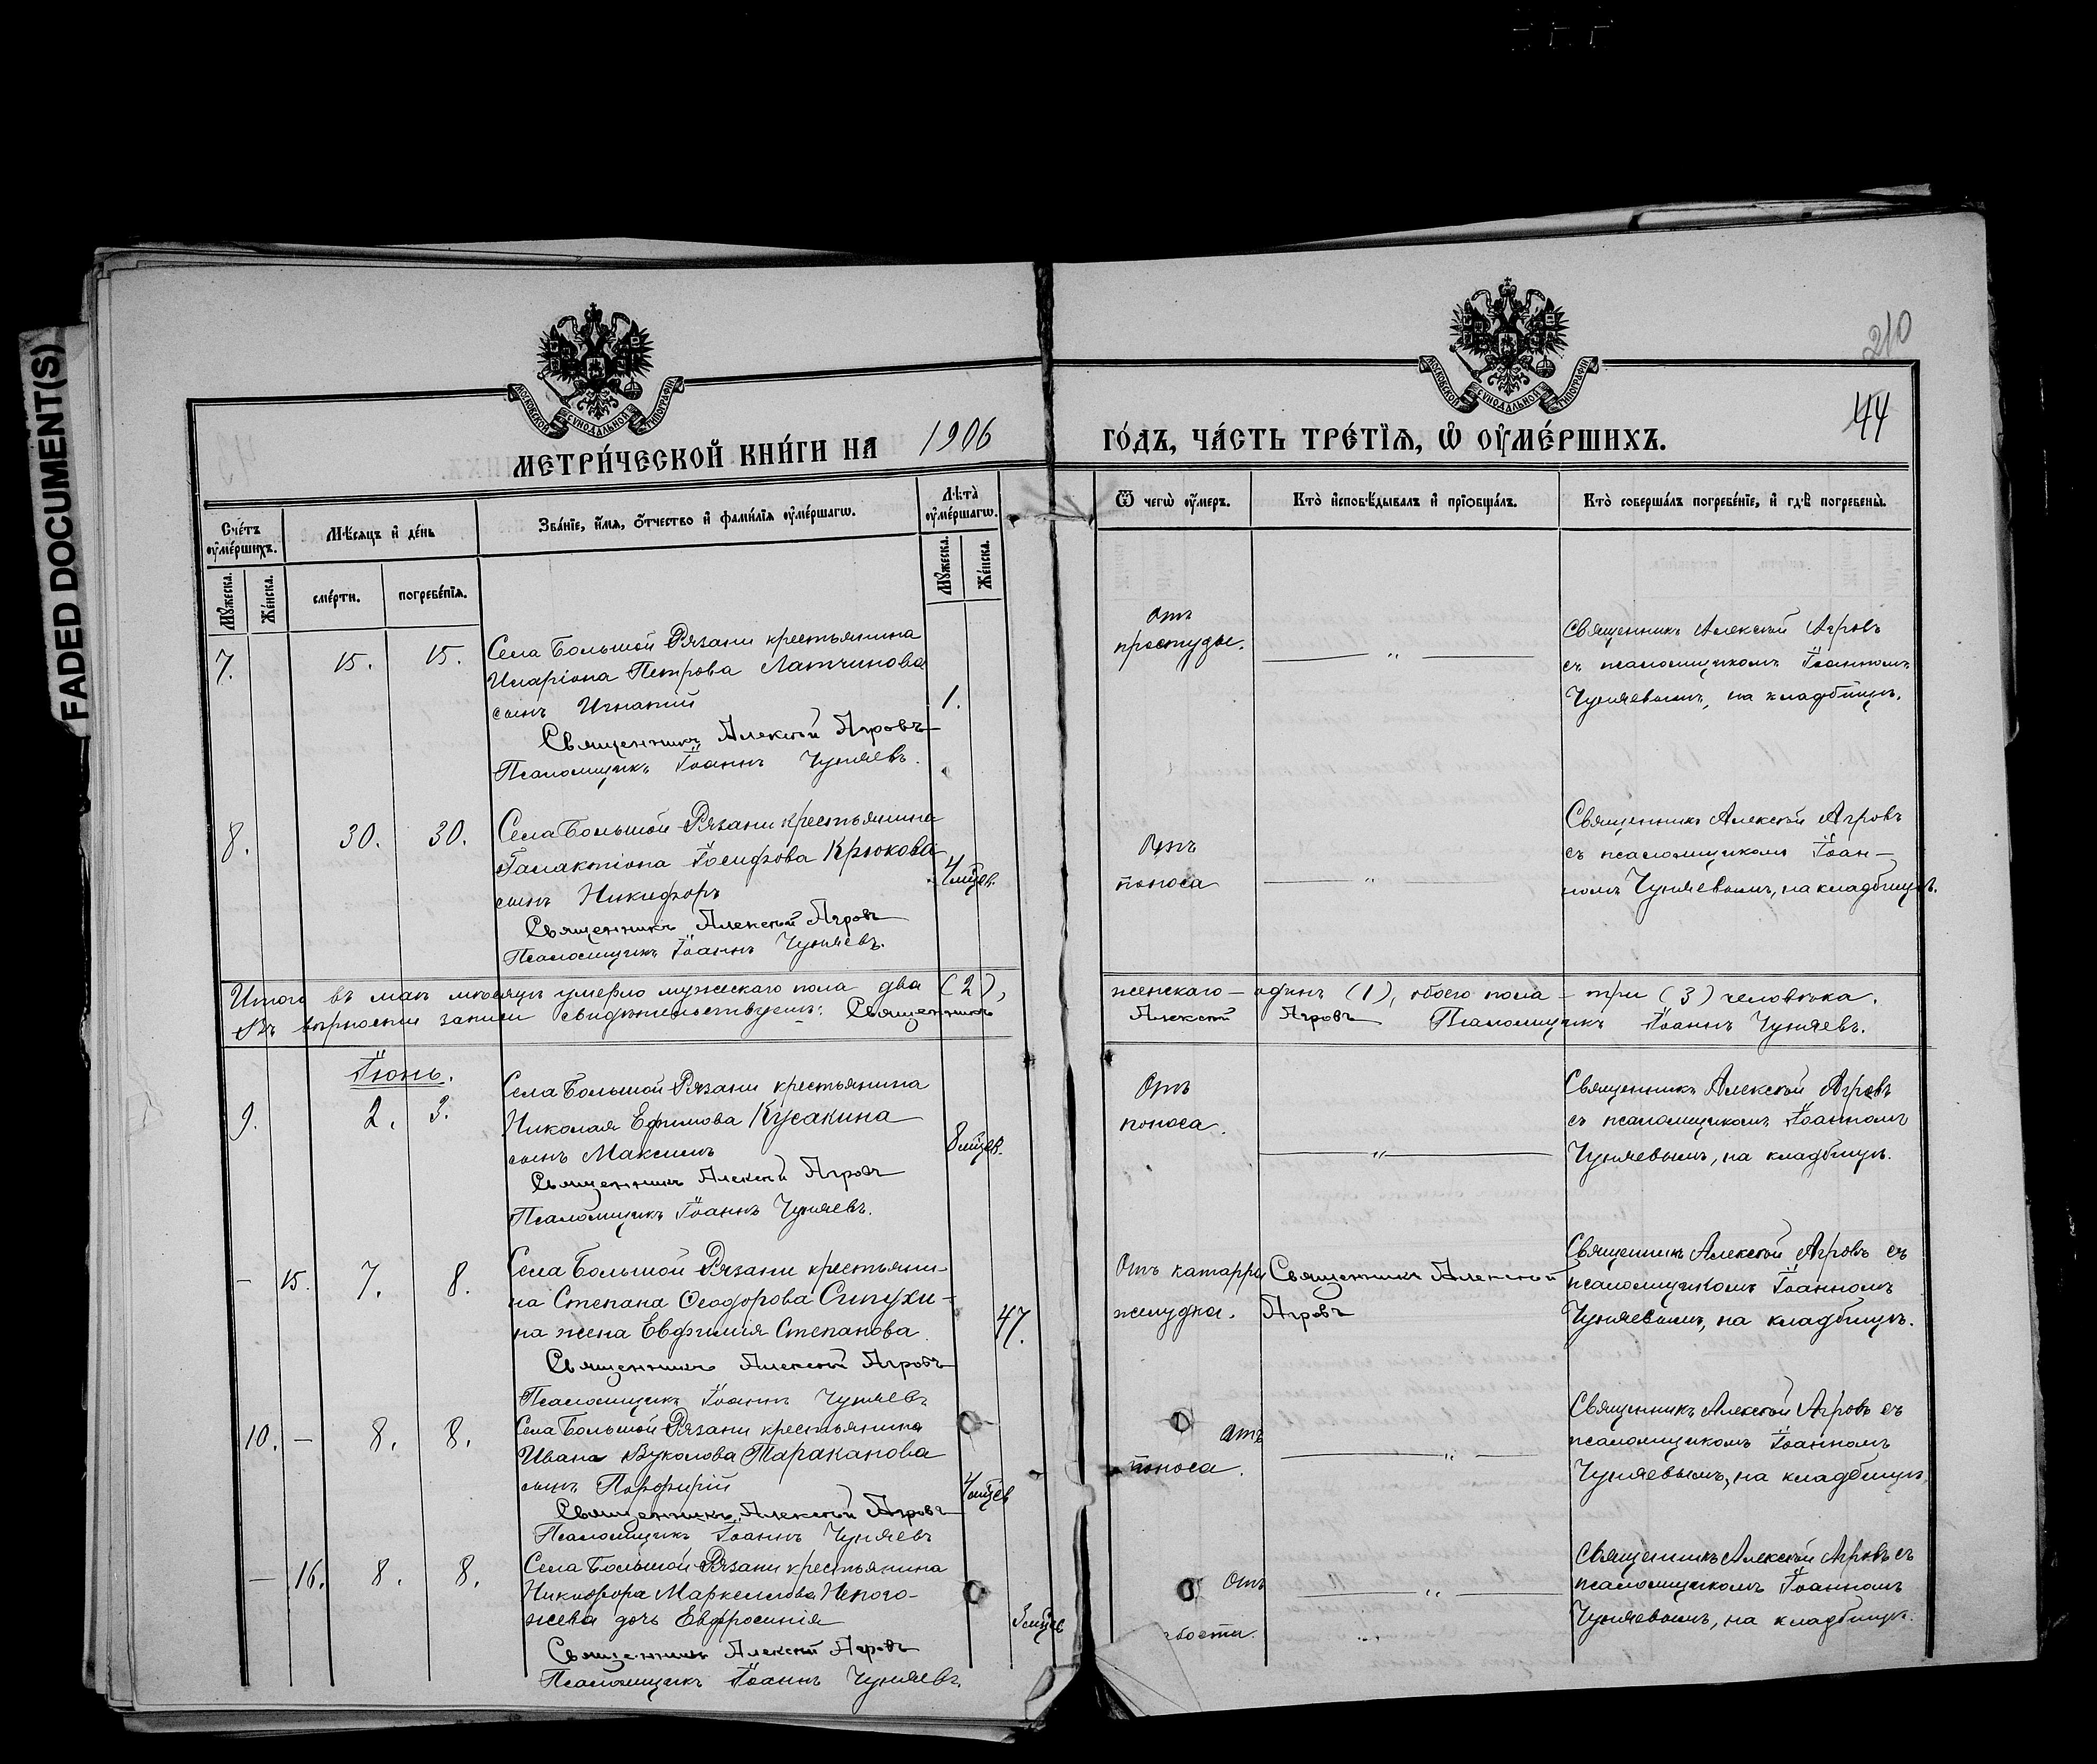 FADED DOCUMENT(S)
210
44
МОСКОВСКОЙ СѴНОДАЛЬНОЙ ТИПОГРАФІИ
МОСКОВСКОЙ СѴНОДАЛЬНОЙ ТИПОГРАФІИ
МЕТРИ́ЧЕСКОЙ КНИ́ГИ НА 1906 ГО́ДЪ, ЧА́СТЬ ТРЕ́ТЇѦ, Ѽ ОУ҆МЕ́РШИХЪ.
Сче́тъ оу҆ме́ршихъ.
Мꙋжеска.
Же́нска.
Мѣ́сѧцъ и҆ де́нь
сме́рти.
погребе́нїѧ.
Зва́нїе, и҆́мѧ, ѻ҆́тчество и҆ фами́лїѧ оу҆ме́ршагѡ.
Лѣ́та оу҆ме́ршагѡ.
Мꙋжеска.
Же́нска.
Ѿ чегѡ̀ оу҆́меръ.
Кто̀ и҆сповѣ́дывалъ и҆ прїѻбща́лъ.
Кто̀ соверша́лъ погребе́нїе, и҆ гдѣ̀ погребены̀.
7. 15. 15.
Села Большой Рязани крестьянина
Иларіона Петрова Латчинова
сынъ Игнатий
1.
Священникъ Алексѣй Агровъ
Псаломщикъ Іоаннъ Чуняевъ.
Отъ
простуды.
— „ —
Священникъ Алексѣй Агровъ
съ псаломщикомъ Іоанномъ
Чуняевымъ, на кладбищѣ.
8. 30. 30.
Села Большой Рязани крестьянина
Галактіона Іосифова Крюкова
сынъ Никифоръ
4 мѣсяц.
Священникъ Алексѣй Агровъ
Псаломщикъ Іоаннъ Чуняевъ.
Отъ
поноса
— „ —
Священникъ Алексѣй Агровъ
съ псаломщикомъ Іоан-
номъ Чуняевымъ, на кладбищѣ.
Итого въ маѣ мѣсяцѣ умерло мужескаго пола два (2), женскаго – одинъ (1), обоего пола – три (3) человѣка.
Въ вѣрности записи свидѣтельствуемъ: Священникъ Алексѣй Агровъ Псаломщикъ Іоаннъ Чуняевъ.
Іюнь.
9. 2. 3.
Села Большой Рязани крестьянина
Николая Ефимова Кусакина
сынъ Максимъ
8 мѣсяц.
Священникъ Алексѣй Агровъ
Псаломщикъ Іоаннъ Чуняевъ.
Отъ
поноса.
— „ —
Священникъ Алексѣй Агровъ
съ псаломщикомъ Іоанномъ
Чуняевымъ, на кладбищѣ.
– 15. 7. 8.
Села Большой Рязани крестьяни-
на Степана Ѳеодорова Сипухи-
на жена Евфимія Степанова.
47.
Священникъ Алексѣй Агровъ
Псаломщикъ Іоаннъ Чуняевъ
Отъ катарра
желудка.
Священникъ Алексѣй
Агровъ
Священникъ Алексѣй Агровъ съ
псаломщикомъ Іоанномъ
Чуняевымъ, на кладбищѣ.
10. – 8. 8.
Села Большой Рязани крестьянина
Ивана Вуколова Тараканова
сынъ Порфирій
4 мѣсяц
Священникъ Алексѣй Агровъ
Псаломщикъ Іоаннъ Чуняевъ
Отъ
поноса.
— „ —
Священникъ Алексѣй Агровъ съ
псаломщикомъ Іоанномъ
Чуняевымъ, на кладбищѣ
– 16. 8. 8.
Села Большой Рязани крестьянина
Никифора Маркеллова Непого-
жева дочь Евфросинія
Священникъ Алексѣй Агровъ
Псаломщикъ Іоаннъ Чуняевъ.
Отъ
— „ —
Священникъ Алексѣй Агровъ съ
псаломщикомъ Іоанномъ
Чуняевымъ, на кладбищѣ.